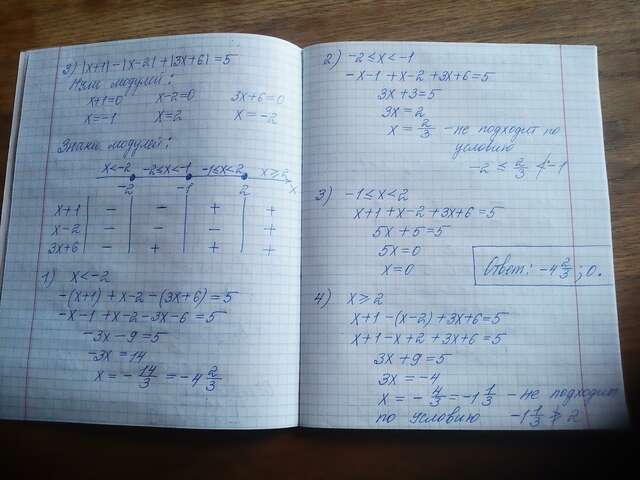 3) |x+1|-|x-2|+|3x+6|=5
Нули модулей:
x+1=0 x-2=0 3x+6=0
x=-1 x=2 x=-2
Знаки модулей:
x<-2 -2≤x<-1 -1≤x<2 x≥2
-2 -1 2 x
x+1 - - + +
x-2 - - - +
3x+6 - + + +
1) x<-2
-(x+1)+x-2-(3x+6)=5
-x-1+x-2-3x-6=5
-3x-9=5
-3x=14
x=-14/3=-4 2/3
2) -2≤x<-1
-x-1+x-2+3x+6=5
3x+3=5
3x=2
x=2/3 -не подходит по
условию
-2≤2/3≮-1
3) -1≤x<2
x+1+x-2+3x+6=5
5x+5=5
5x=0
x=0
Ответ: -4 2/3; 0.
4) x≥2
x+1-(x-2)+3x+6=5
x+1-x+2+3x+6=5
3x+9=5
3x=-4
x=-4/3=-1 1/3 -не подходит
по условию -1 1/3 ≱ 2